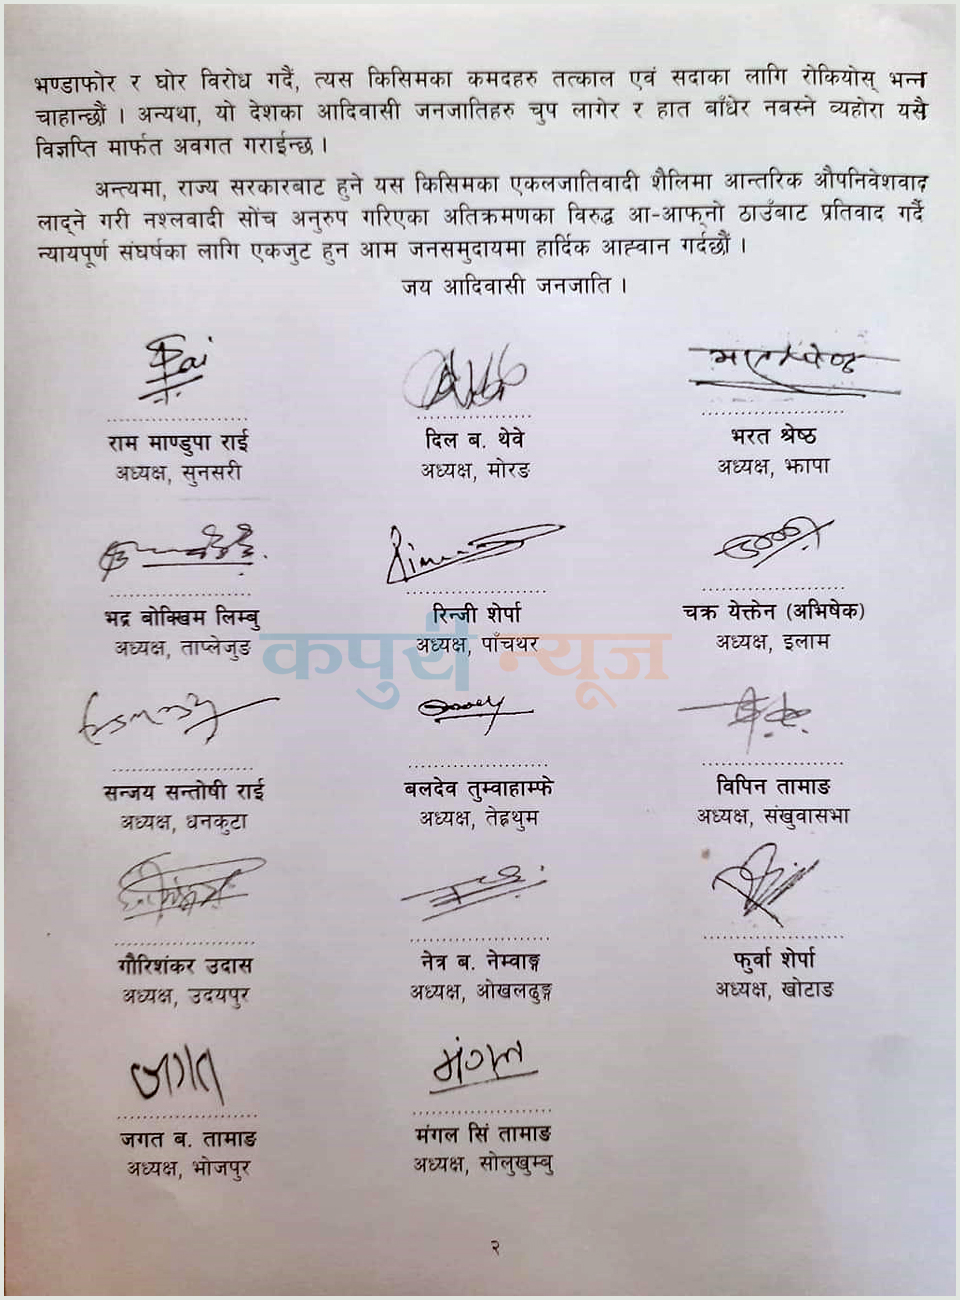 भण्डाफोर र घोर विरोध गर्दै, त्यस किसिमका कमदहरु तत्काल एवं सदाका लागि रोकियोस् भन्न
चाहान्छौं । अन्यथा, यो देशका आदिवासी जनजातिहरु चुप लागेर र हात बाँधेर नबस्ने व्यहोरा यसै
विज्ञप्ति मार्फत अवगत गराईन्छ ।
अन्त्यमा, राज्य सरकारबाट हुने यस किसिमका एकलजातिवादी शैलिमा आन्तरिक औपनिवेशवाद
लाद्ने गरी नश्लवादी सोंच अनुरुप गरिएका अतिक्रमणका विरुद्ध आ-आफ्नो ठाउँबाट प्रतिवाद गर्दै
न्यायपूर्ण संघर्षका लागि एकजुट हुन आम जनसमुदायमा हार्दिक आह्वान गर्दछौं ।
जय आदिवासी जनजाति ।
Rai
राम माण्डुपा राई दिल ब. थेवे भरत श्रेष्ठ
अध्यक्ष, सुनसरी अध्यक्ष, मोरङ अध्यक्ष, झापा
भद्र बोक्खिम लिम्बु रिन्जी शेर्पा चक्र येक्तेन (अभिषेक)
अध्यक्ष, ताप्लेजुङ अध्यक्ष, पाँचथर अध्यक्ष, इलाम
कपुरी न्यूज
सन्जय सन्तोषी राई बलदेव तुम्वाहाम्फे विपिन तामाङ
अध्यक्ष, धनकुटा अध्यक्ष, तेह्रथुम अध्यक्ष, संखुवासभा
गौरिशंकर उदास नेत्र ब. नेम्वाङ्ग फुर्वा शेर्पा
अध्यक्ष, उदयपुर अध्यक्ष, ओखलढुङ्ग अध्यक्ष, खोटाङ
जगत मंगल
जगत ब. तामाङ मंगल सिं तामाङ
अध्यक्ष, भोजपुर अध्यक्ष, सोलुखुम्बु
२